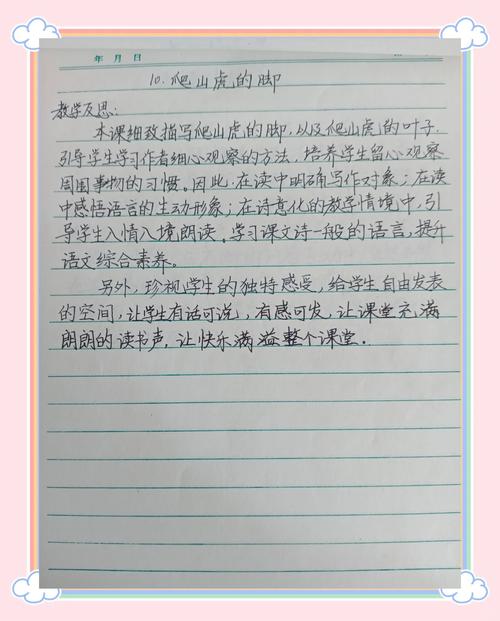 年 月 日
10. 爬山虎的脚
教学反思：
本课细致描写爬山虎的脚，以及爬山虎的叶子，
引导学生学习作者细心观察的方法，培养学生留心观察
周围事物的习惯。因此，在读中明确写作对象；在读
中感悟语言的生动形象；在诗意化的教学情境中，引
导学生入情入境朗读，学习课文诗一般的语言，提升
语文综合素养。
另外，珍视学生的独特感受，给学生自由发表
的空间，让学生有话可说，有感可发，让课堂充满
朗朗的读书声，让快乐满溢整个课堂。